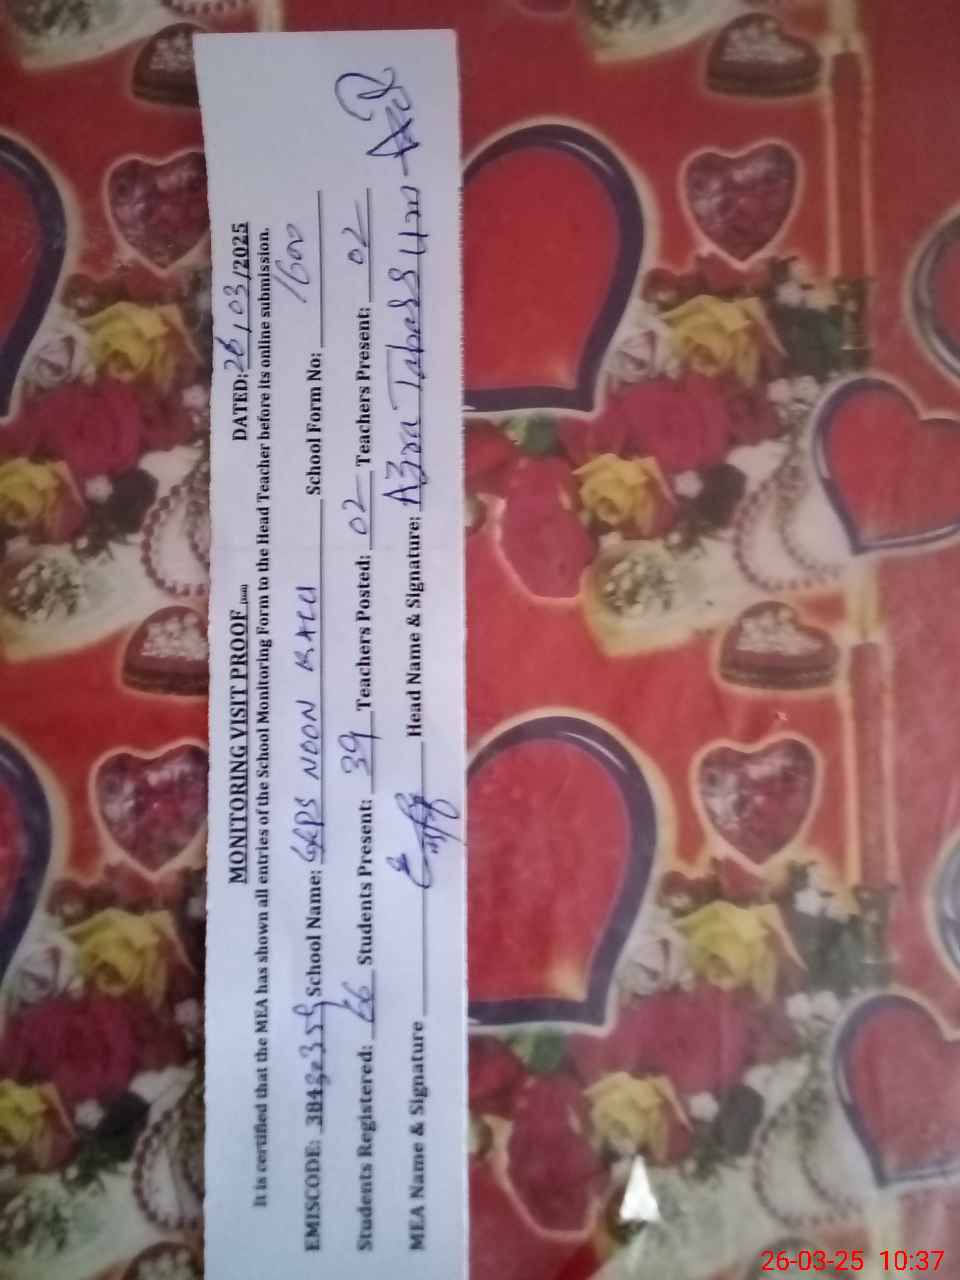 MONITORING VISIT PROOF DATED: 26/03/2025
It is certified that the MEA has shown all entries of the School Monitoring Form to the Head Teacher before its online submission.
EMISCODE: School Name: GGPS NOON School Form No: 1600
Students Registered: 66 Students Present: 39 Teachers Posted: 02 Teachers Present: 02
MEA Name & Signature Head Name & Signature: Azra Tabassum
26-03-25 10:37